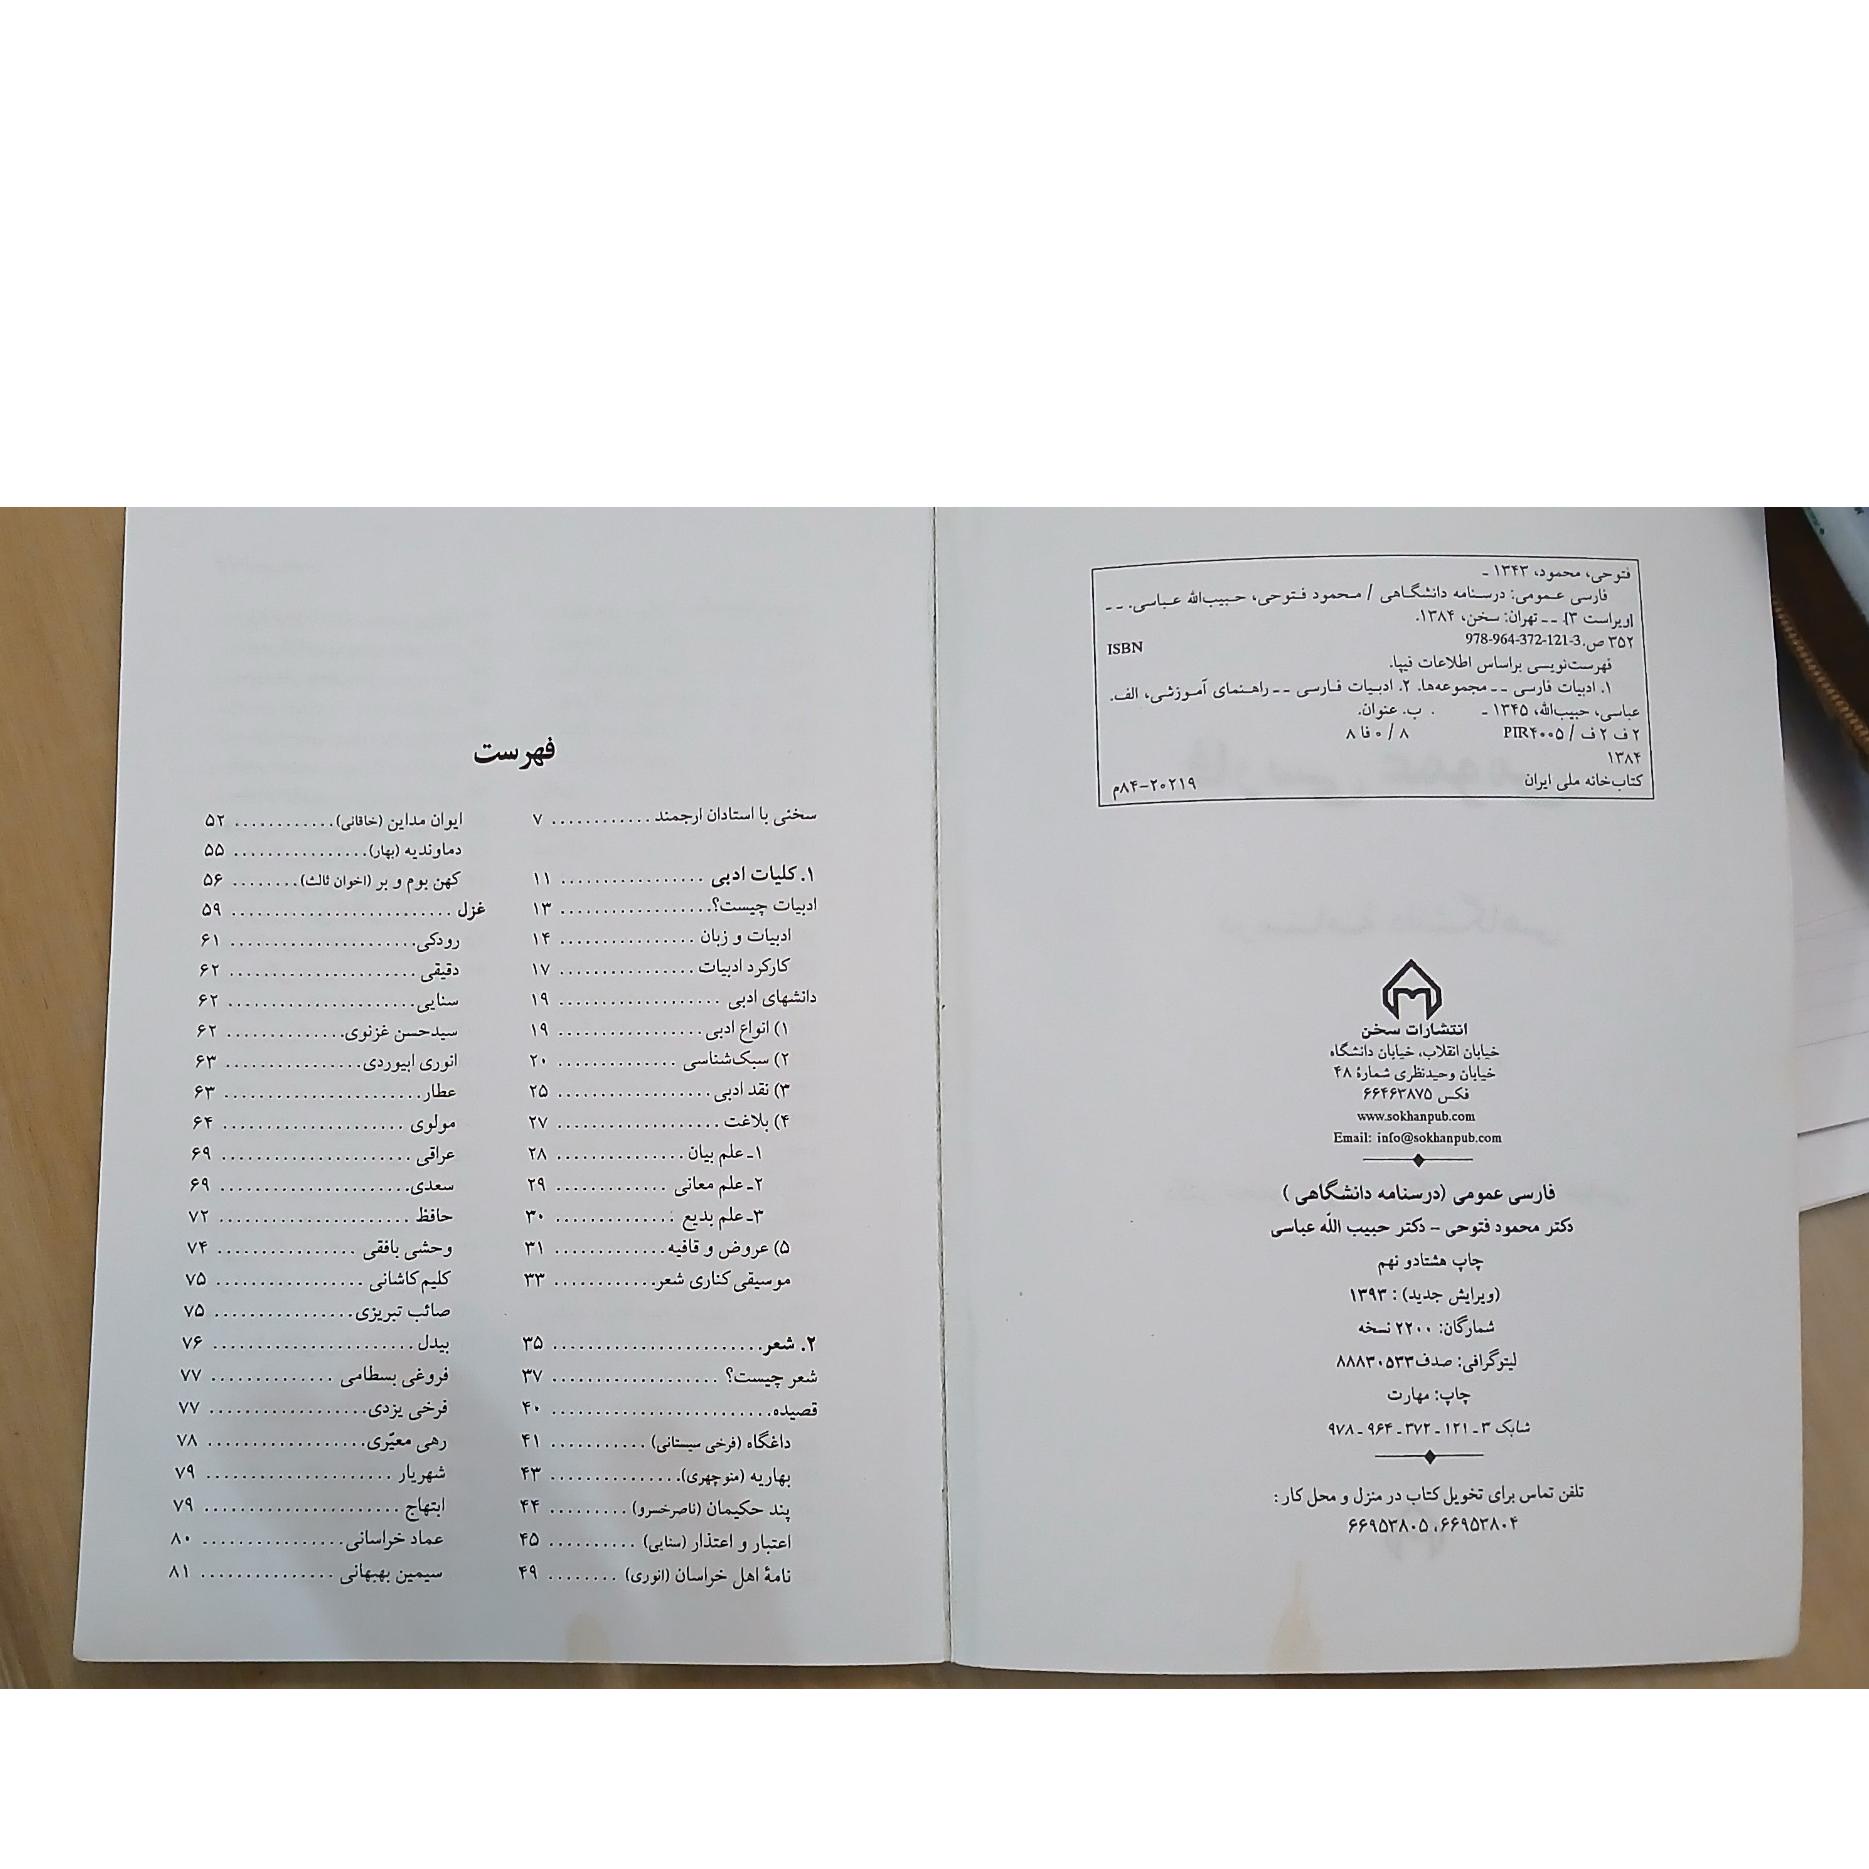 فتوحی، محمود، ۱۳۴۳ ـ
فارسی عمومی: درسنامه دانشگاهی / محمود فتوحی، حبیب‌الله عباسی. ـ ـ
[ویراست ۳]. ـ ـ تهران: سخن، ۱۳۸۴.
۳۵۲ ص. 978-964-372-121-3 ISBN
فهرست‌نویسی براساس اطلاعات فیپا.
۱. ادبیات فارسی ـ ـ مجموعه‌ها. ۲. ادبیات فارسی ـ ـ راهنمای آموزشی، الف.
عباسی، حبیب‌الله، ۱۳۴۵ ـ . ب. عنوان.
۲ ف ۲ ف / PIR۴۰۰۵ ۸ / ۰ فا ۸
۱۳۸۴
کتاب‌خانه ملی ایران ۲۰۲۱۹-۸۴م
انتشارات سخن
خیابان انقلاب، خیابان دانشگاه
خیابان وحیدنظری شمارهٔ ۴۸
فکس ۶۶۴۶۳۸۷۵
www.sokhanpub.com
Email: info@sokhanpub.com
فارسی عمومی (درسنامه دانشگاهی )
دکتر محمود فتوحی - دکتر حبیب اللّه عباسی
چاپ هشتادو نهم
(ویرایش جدید) : ۱۳۹۳
شمارگان: ۲۲۰۰ نسخه
لیتوگرافی: صدف۸۸۸۳۰۵۳۳
چاپ: مهارت
شابک ۳ ـ ۱۲۱ ـ ۳۷۲ ـ ۹۶۴ ـ ۹۷۸
تلفن تماس برای تخویل کتاب در منزل و محل کار :
۶۶۹۵۳۸۰۴ ،۶۶۹۵۳۸۰۵
فهرست
سخنی با استادان ارجمند ............ ۷
۱. کلیات ادبی ................. ۱۱
ادبیات چیست؟.................. ۱۳
ادبیات و زبان ................ ۱۴
کارکرد ادبیات ................ ۱۷
دانشهای ادبی ................... ۱۹
۱) انواع ادبی................. ۱۹
۲) سبک‌شناسی .............. ۲۰
۳) نقد ادبی.................. ۲۵
۴) بلاغت ................... ۲۷
۱ـ علم بیان............... ۲۸
۲ـ علم معانی ............. ۲۹
۳ـ علم بدیع .............. ۳۰
۵) عروض و قافیه............. ۳۱
موسیقی کناری شعر............ ۳۳
۲. شعر......................... ۳۵
شعر چیست؟ .................... ۳۷
قصیده.......................... ۴۰
داغگاه (فرخی سیستانی) ........... ۴۱
بهاریه (منوچهری)................ ۴۳
پند حکیمان (ناصرخسرو) ......... ۴۴
اعتبار و اعتذار (سنایی) .......... ۴۵
نامهٔ اهل خراسان (انوری) ........ ۴۹
ایوان مداین (خاقانی)............ ۵۲
دماوندیه (بهار)................ ۵۵
کهن بوم و بر (اخوان ثالث)........ ۵۶
غزل .......................... ۵۹
رودکی...................... ۶۱
دقیقی ...................... ۶۲
سنایی....................... ۶۲
سیدحسن غزنوی.............. ۶۲
انوری ابیوردی................ ۶۳
عطار........................ ۶۳
مولوی ...................... ۶۴
عراقی ....................... ۶۹
سعدی....................... ۶۹
حافظ ....................... ۷۲
وحشی بافقی ................ ۷۴
کلیم کاشانی ................. ۷۵
صائب تبریزی................. ۷۵
بیدل ........................ ۷۶
فروغی بسطامی .............. ۷۷
فرخی یزدی................... ۷۷
رهی معیّری................... ۷۸
شهریار ...................... ۷۹
ابتهاج ....................... ۷۹
عماد خراسانی................. ۸۰
سیمین بهبهانی ............... ۸۱